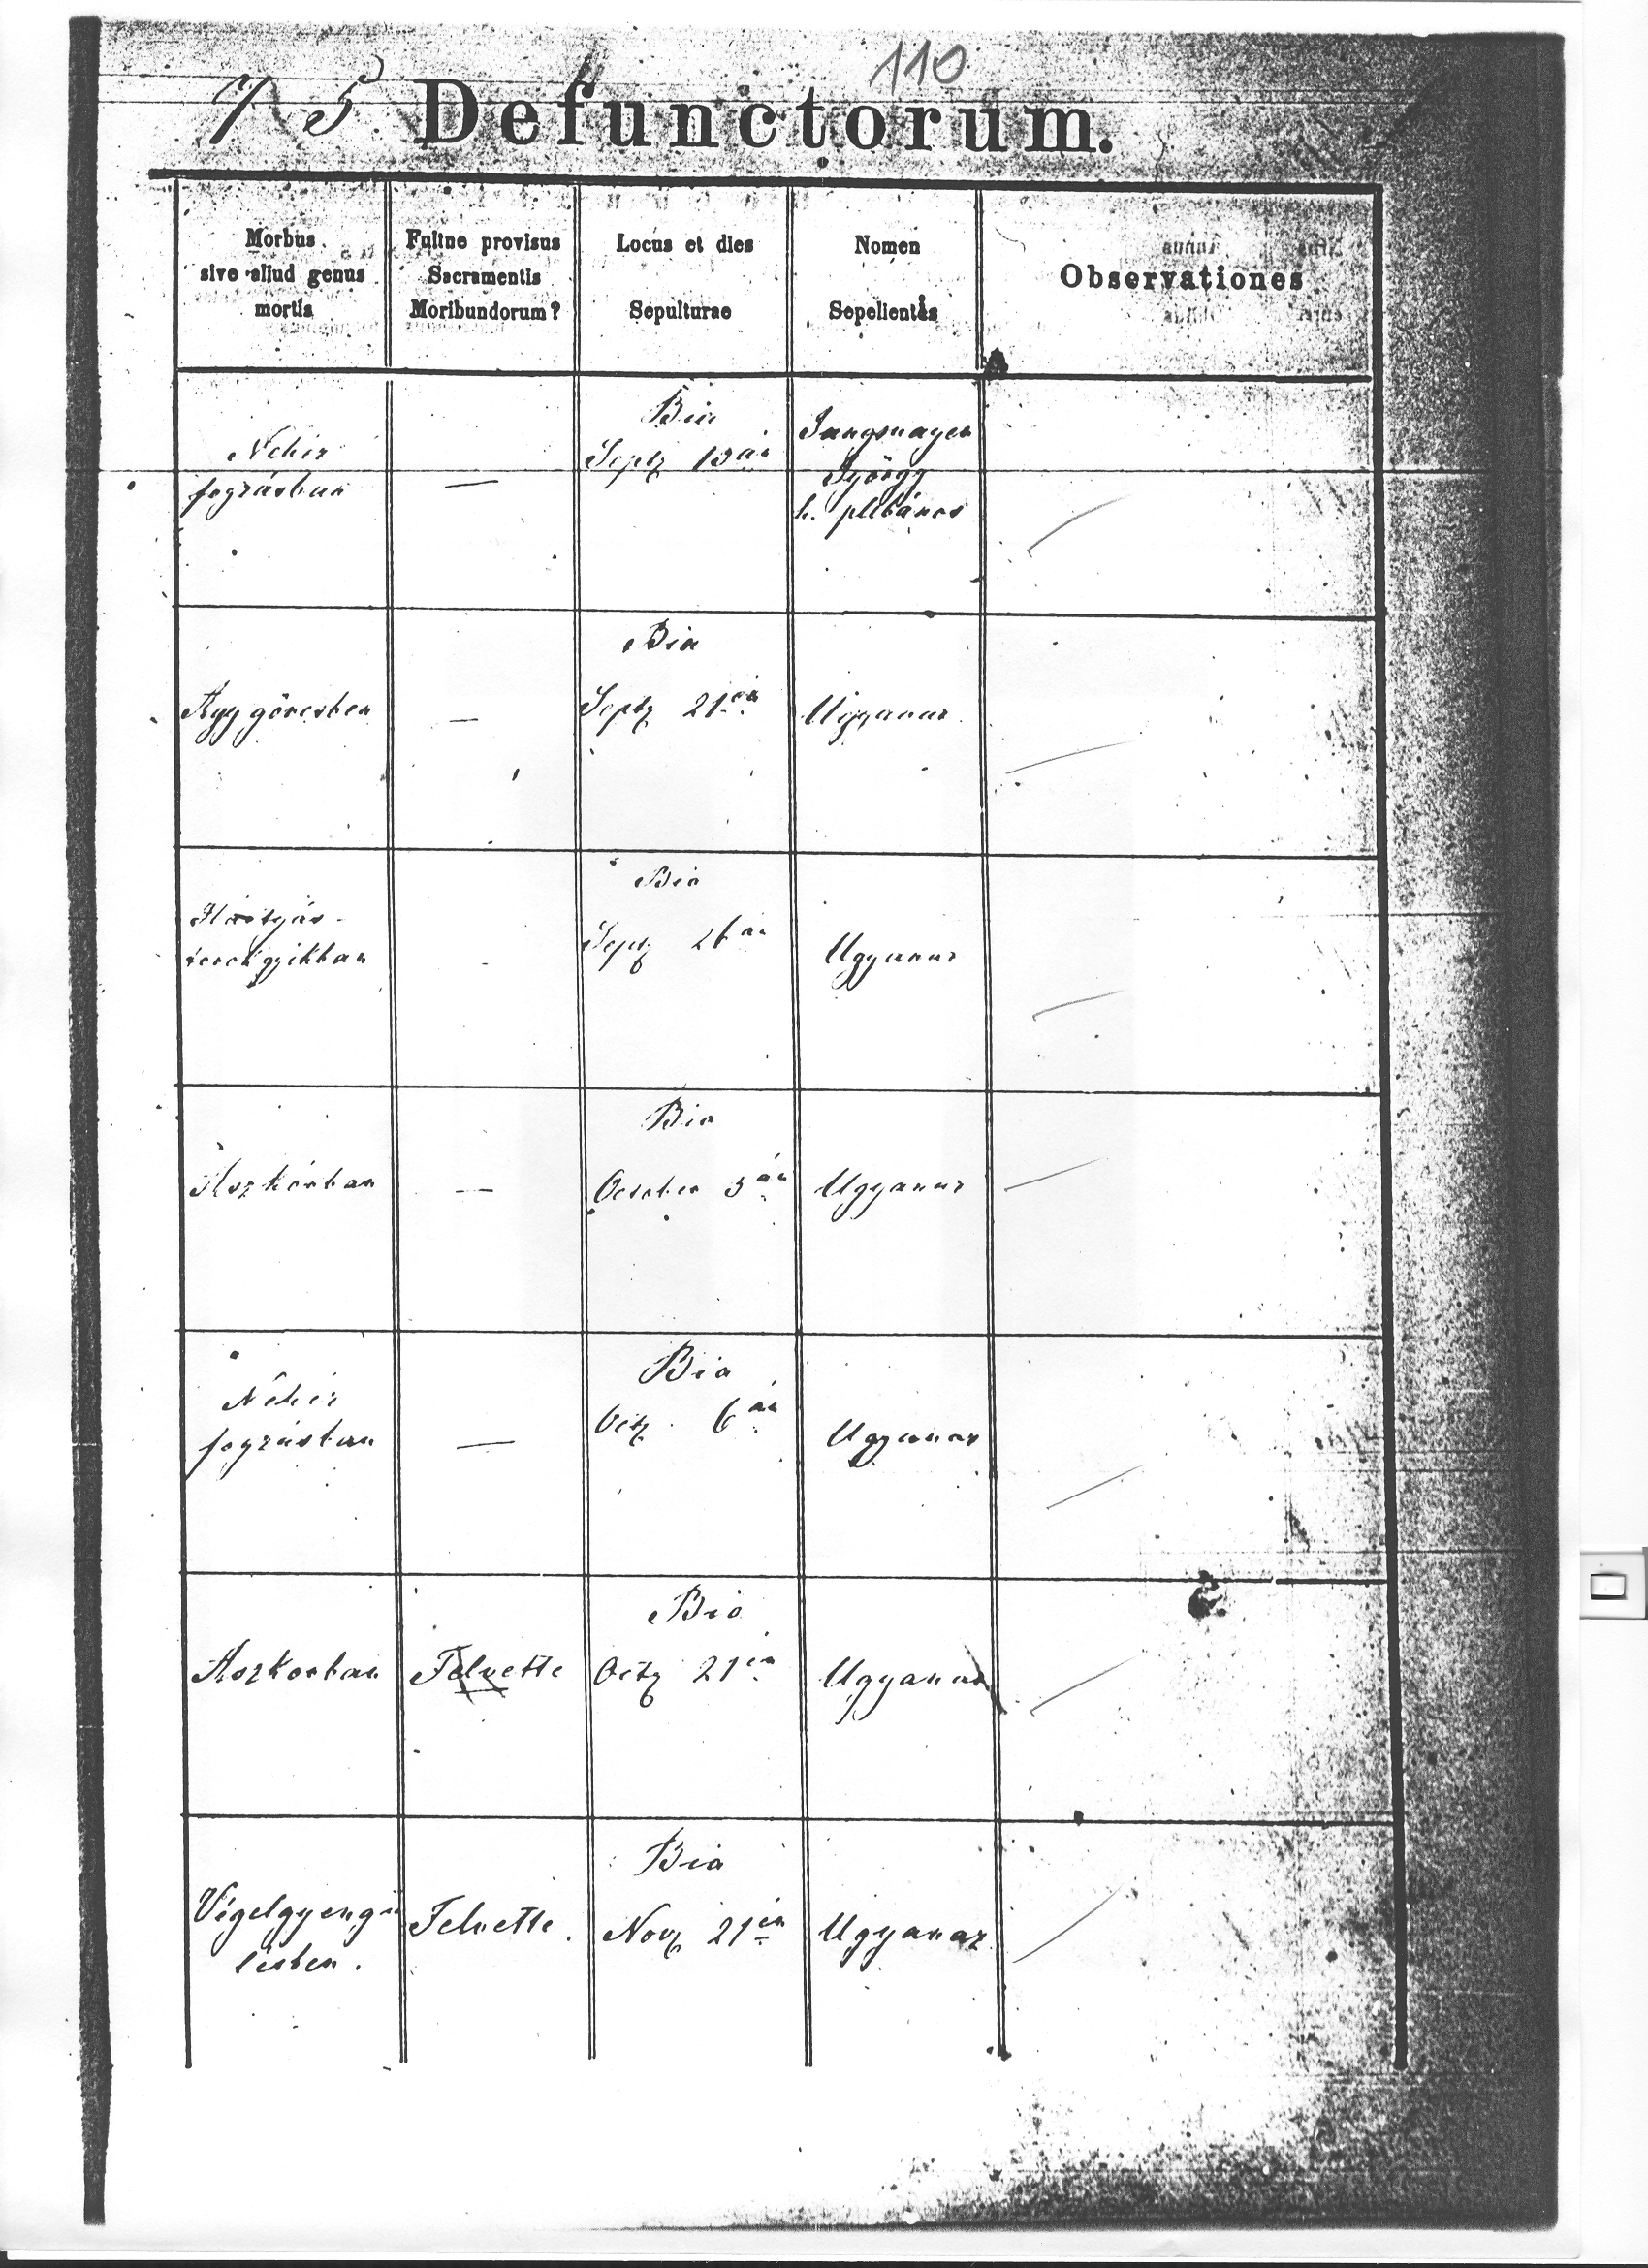 110
75 Defunctorum.
Morbus
sive aliud genus
mortis
Fuitne provisus
Sacramentis
Moribundorum?
Locus et dies
Sepulturae
Nomen
Sepelientis
Observationes
Nehéz
fogzásban
—
Bia
Septz 13án
György
h. plébános
Agygörcsben
—
Bia
Septz 21én
Ugyanaz
Bia
Septz 26án
Ugyanaz
Aszkórban
—
Bia
October 3án
Ugyanaz
Nehéz
fogzásban
—
Bia
Octz 6án
Ugyanaz
Aszkorban
Felvette
Bia
Octz 21én
Ugyanaz
Végelgyengü
lésben.
Felvette.
Bia
Novz 21én
Ugyanaz